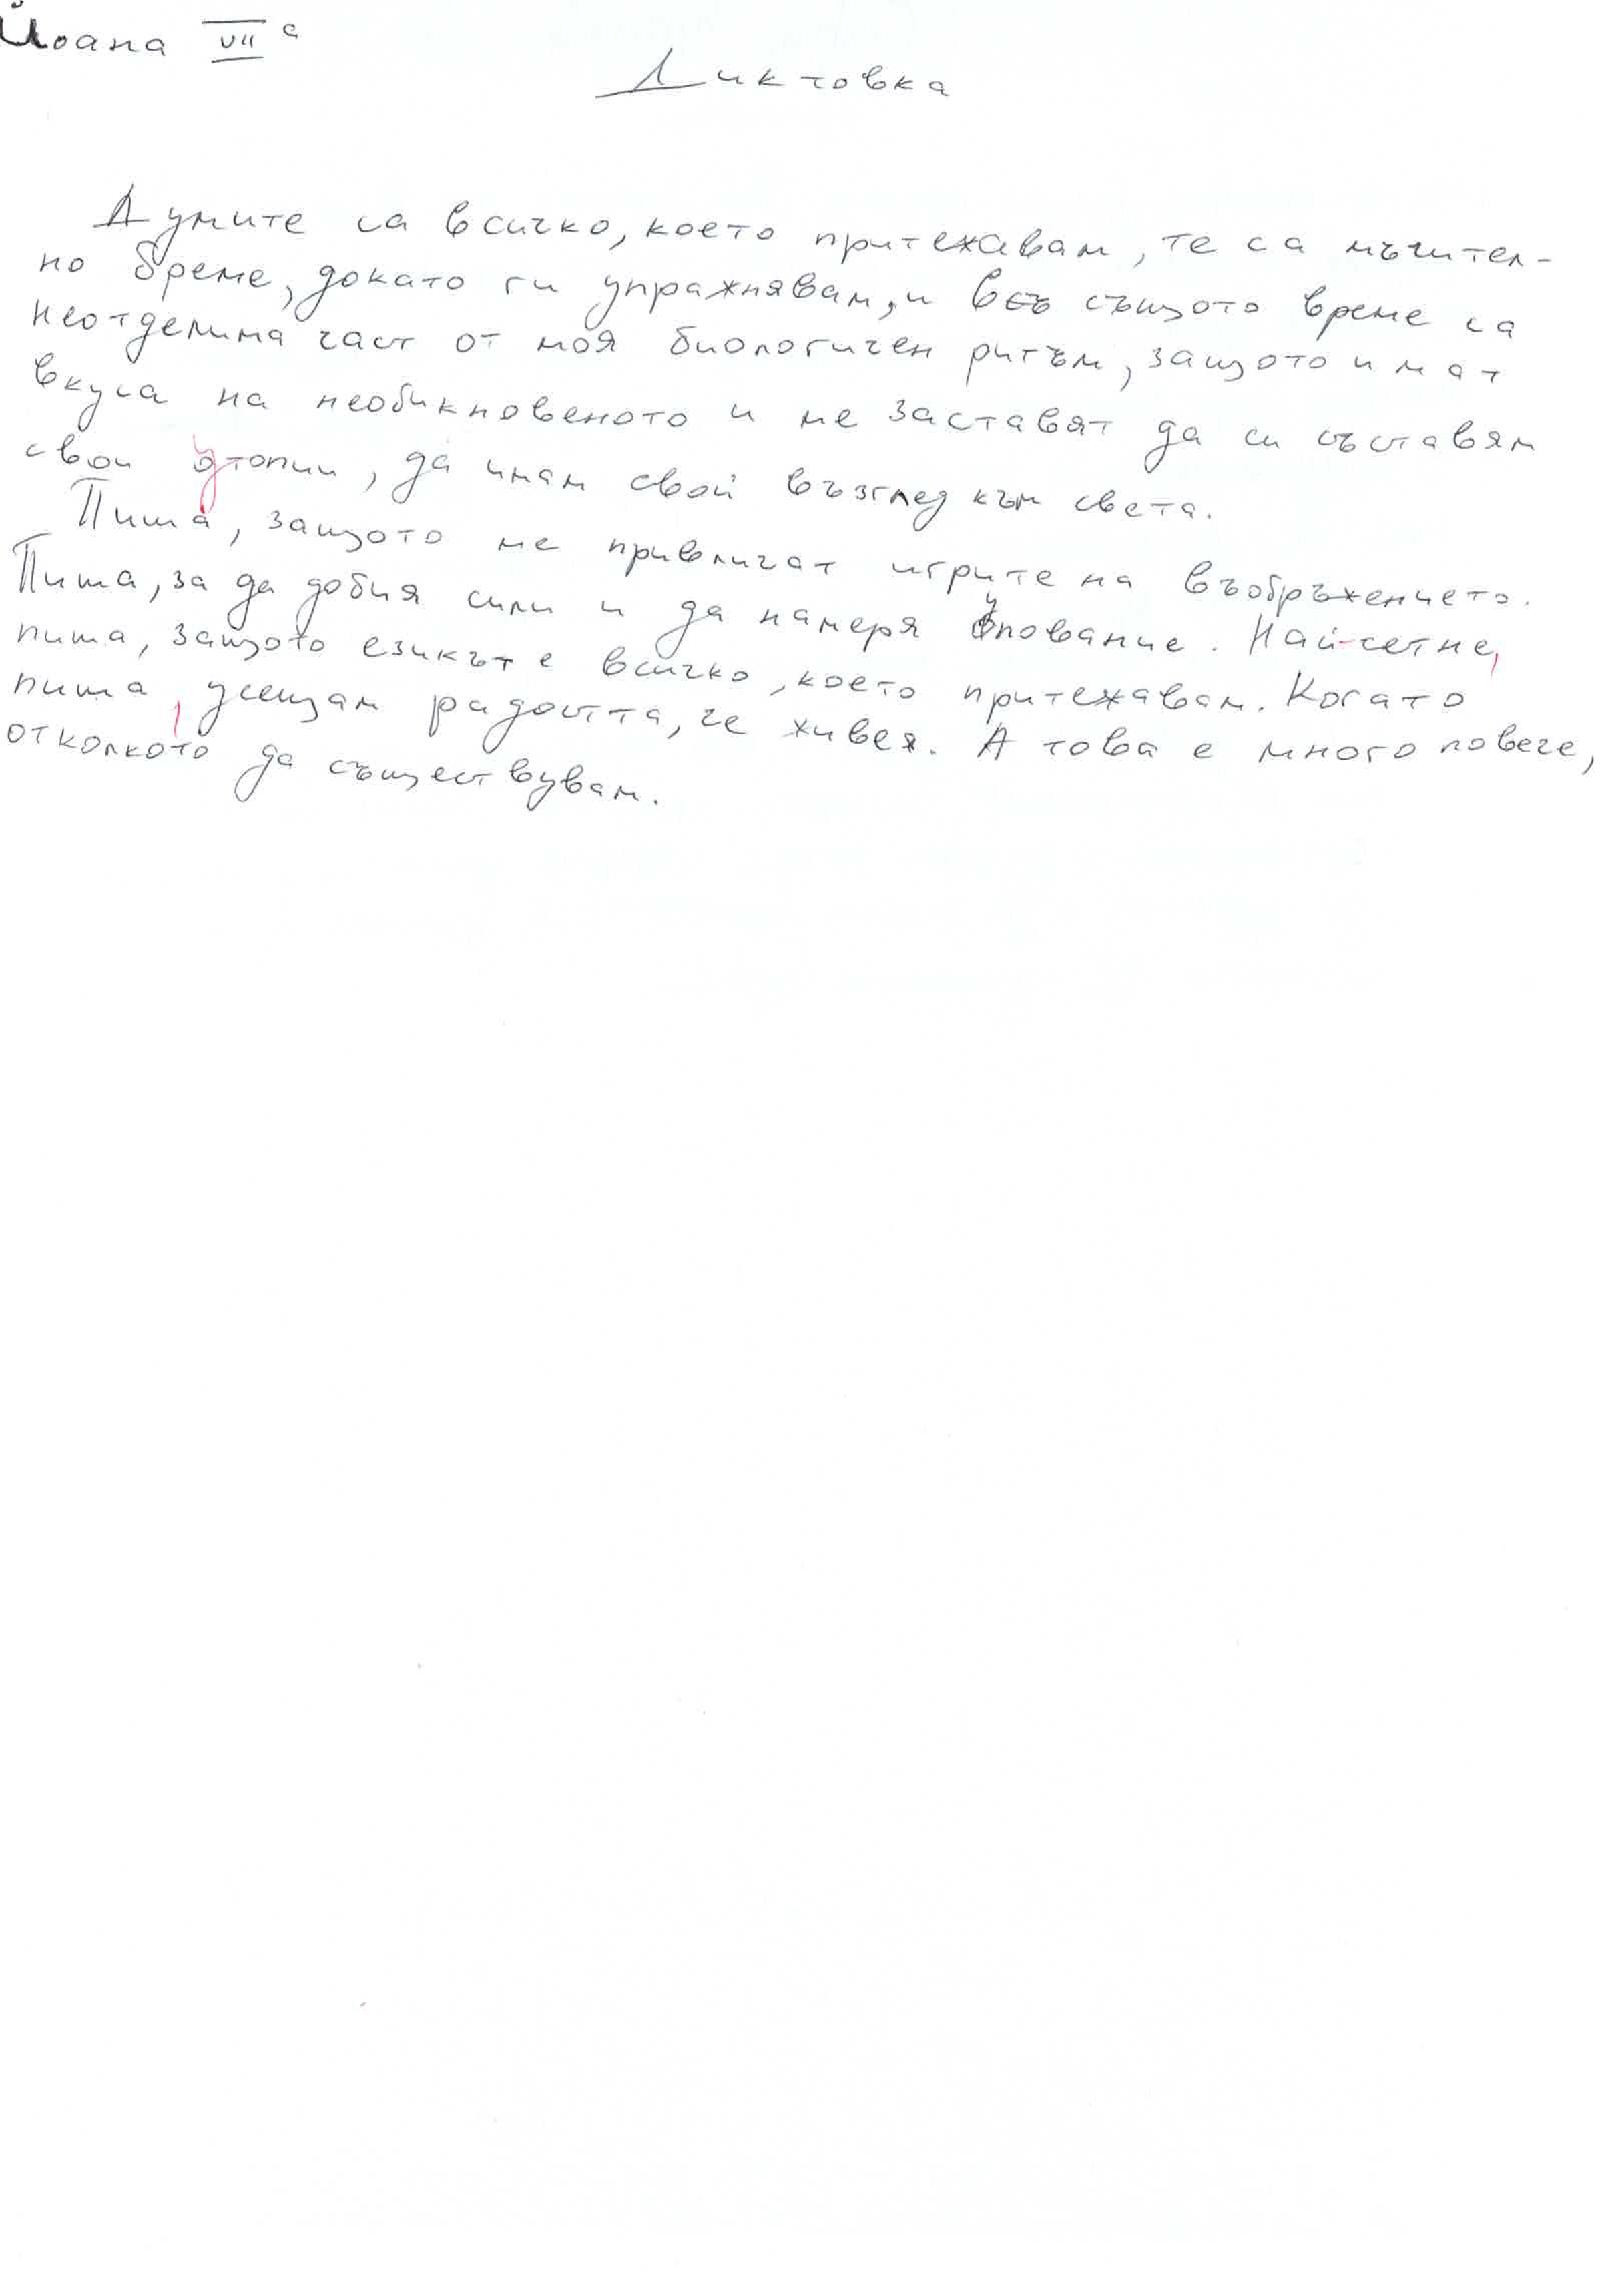 Йоана VII c
Диктовка
Думите са всичко, което притежавам, те са мъчител-
но бреме, докато ги упражнявам, и във същото време са
неотделима част от моя биологичен ритъм, защото имат
вкуса на необикновеното и ме заставят да си съставям
свои утопии, да имам свой възглед към света.
Пиша, защото ме привличат игрите на въображението.
Пиша, за да добия сили и да намеря упование. Най-сетне,
пиша, защото езикът е всичко, което притежавам. Когато
пиша, усещам радостта, че живея. А това е много повече,
отколкото да съществувам.